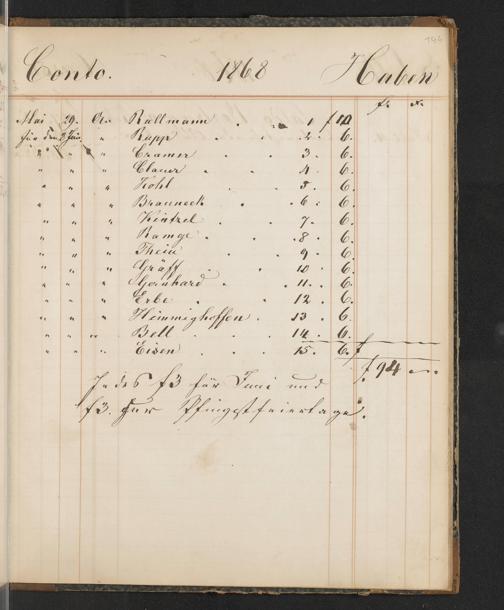 146
Conto. 1868 Haben
fl. x.
Mai 29. Cr. Rallmann . . 1 f 10
für den Juni " Rapp . . 2. 6.
" " " Cramer . . 3. 6.
" " " Clauer . . 4. 6.
" " " Kohl . . 5. 6.
" " " Brauneck . . 6. 6.
" " " Kintzel . . 7. 6.
" " " Ramge . . 8. 6.
" " " Thein . . 9. 6.
" " " Gräff . . 10. 6.
" " " Gernhard . . 11. 6.
" " " Erbe . . 12. 6.
" " " Heimmighoffen . 13. 6.
" " " Bell . . 14. 6.
" " " Eisen . . 15. 6. f
f. 94
Jedes f3 für Juni und
f3. für Pfingstfeiertage.